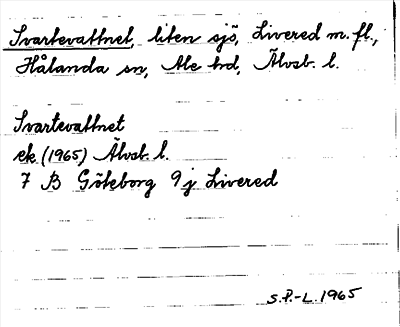 Svartevattnet, liten sjö, Livered m.fl.,
Hålanda sn, Ale hd, Älvsb. l.
Svartevattnet
ek. (1965) Älvsb. l.
7 B Göteborg 9j Livered
S.P.-L. 1965